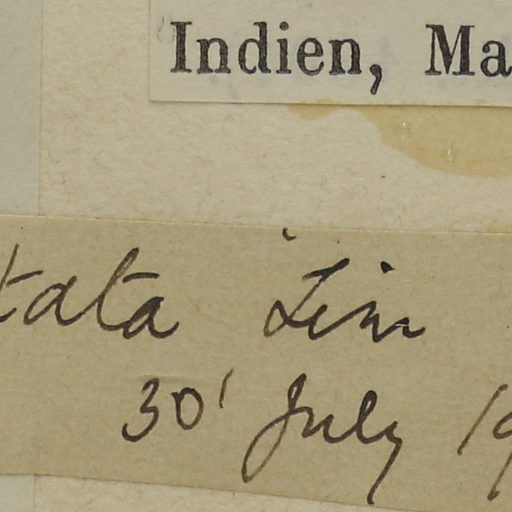 Indien, Ma
tata Lin
30' July 19